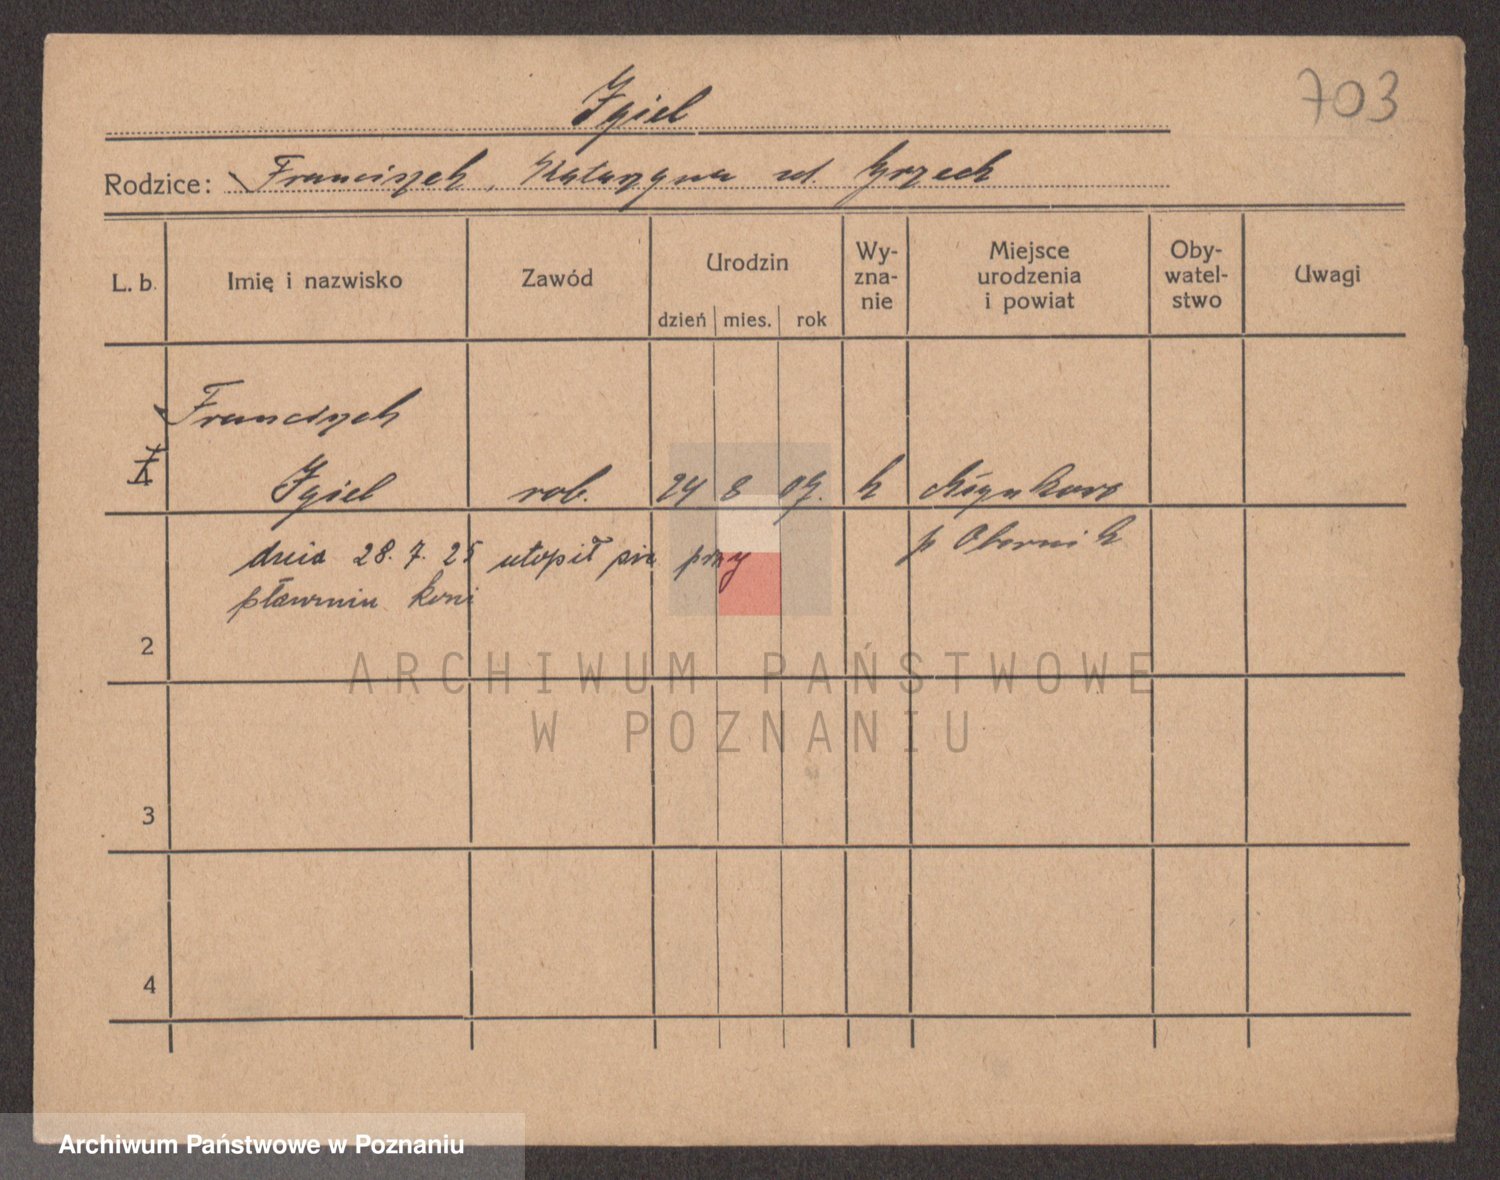 703
Igiel
Rodzice: Franciszek, Katarzyna ur. Grzech
L. b. Imię i nazwisko Zawód Urodzin Wy-zna-nie Miejsce urodzenia i powiat Oby-watel-stwo Uwagi
dzień mies. rok
Franciszek
Igiel rob. 24 8 09. k
dnia 28. 7. 25 utopił się przy p Obornik
pławieniu koni
2
ARCHIWUM PAŃSTWOWE
W POZNANIU
3
4
Archiwum Państwowe w Poznaniu